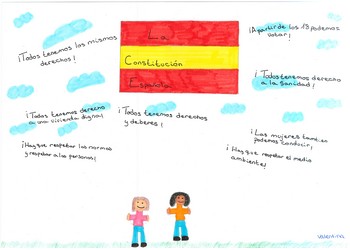 La
Constitución
Española
¡Todos tenemos los mismos
derechos!
¡A partir de los 18 podemos
votar!
¡Todos tenemos derecho
a la sanidad!
¡Todos tenemos derecho
a una vivienda digna!
¡Todos tenemos derechos
y deberes!
¡Las mujeres también
podemos conducir!
¡Hay que respetar las normas
y respetar a las personas!
¡Hay que respetar el medio
ambiente!